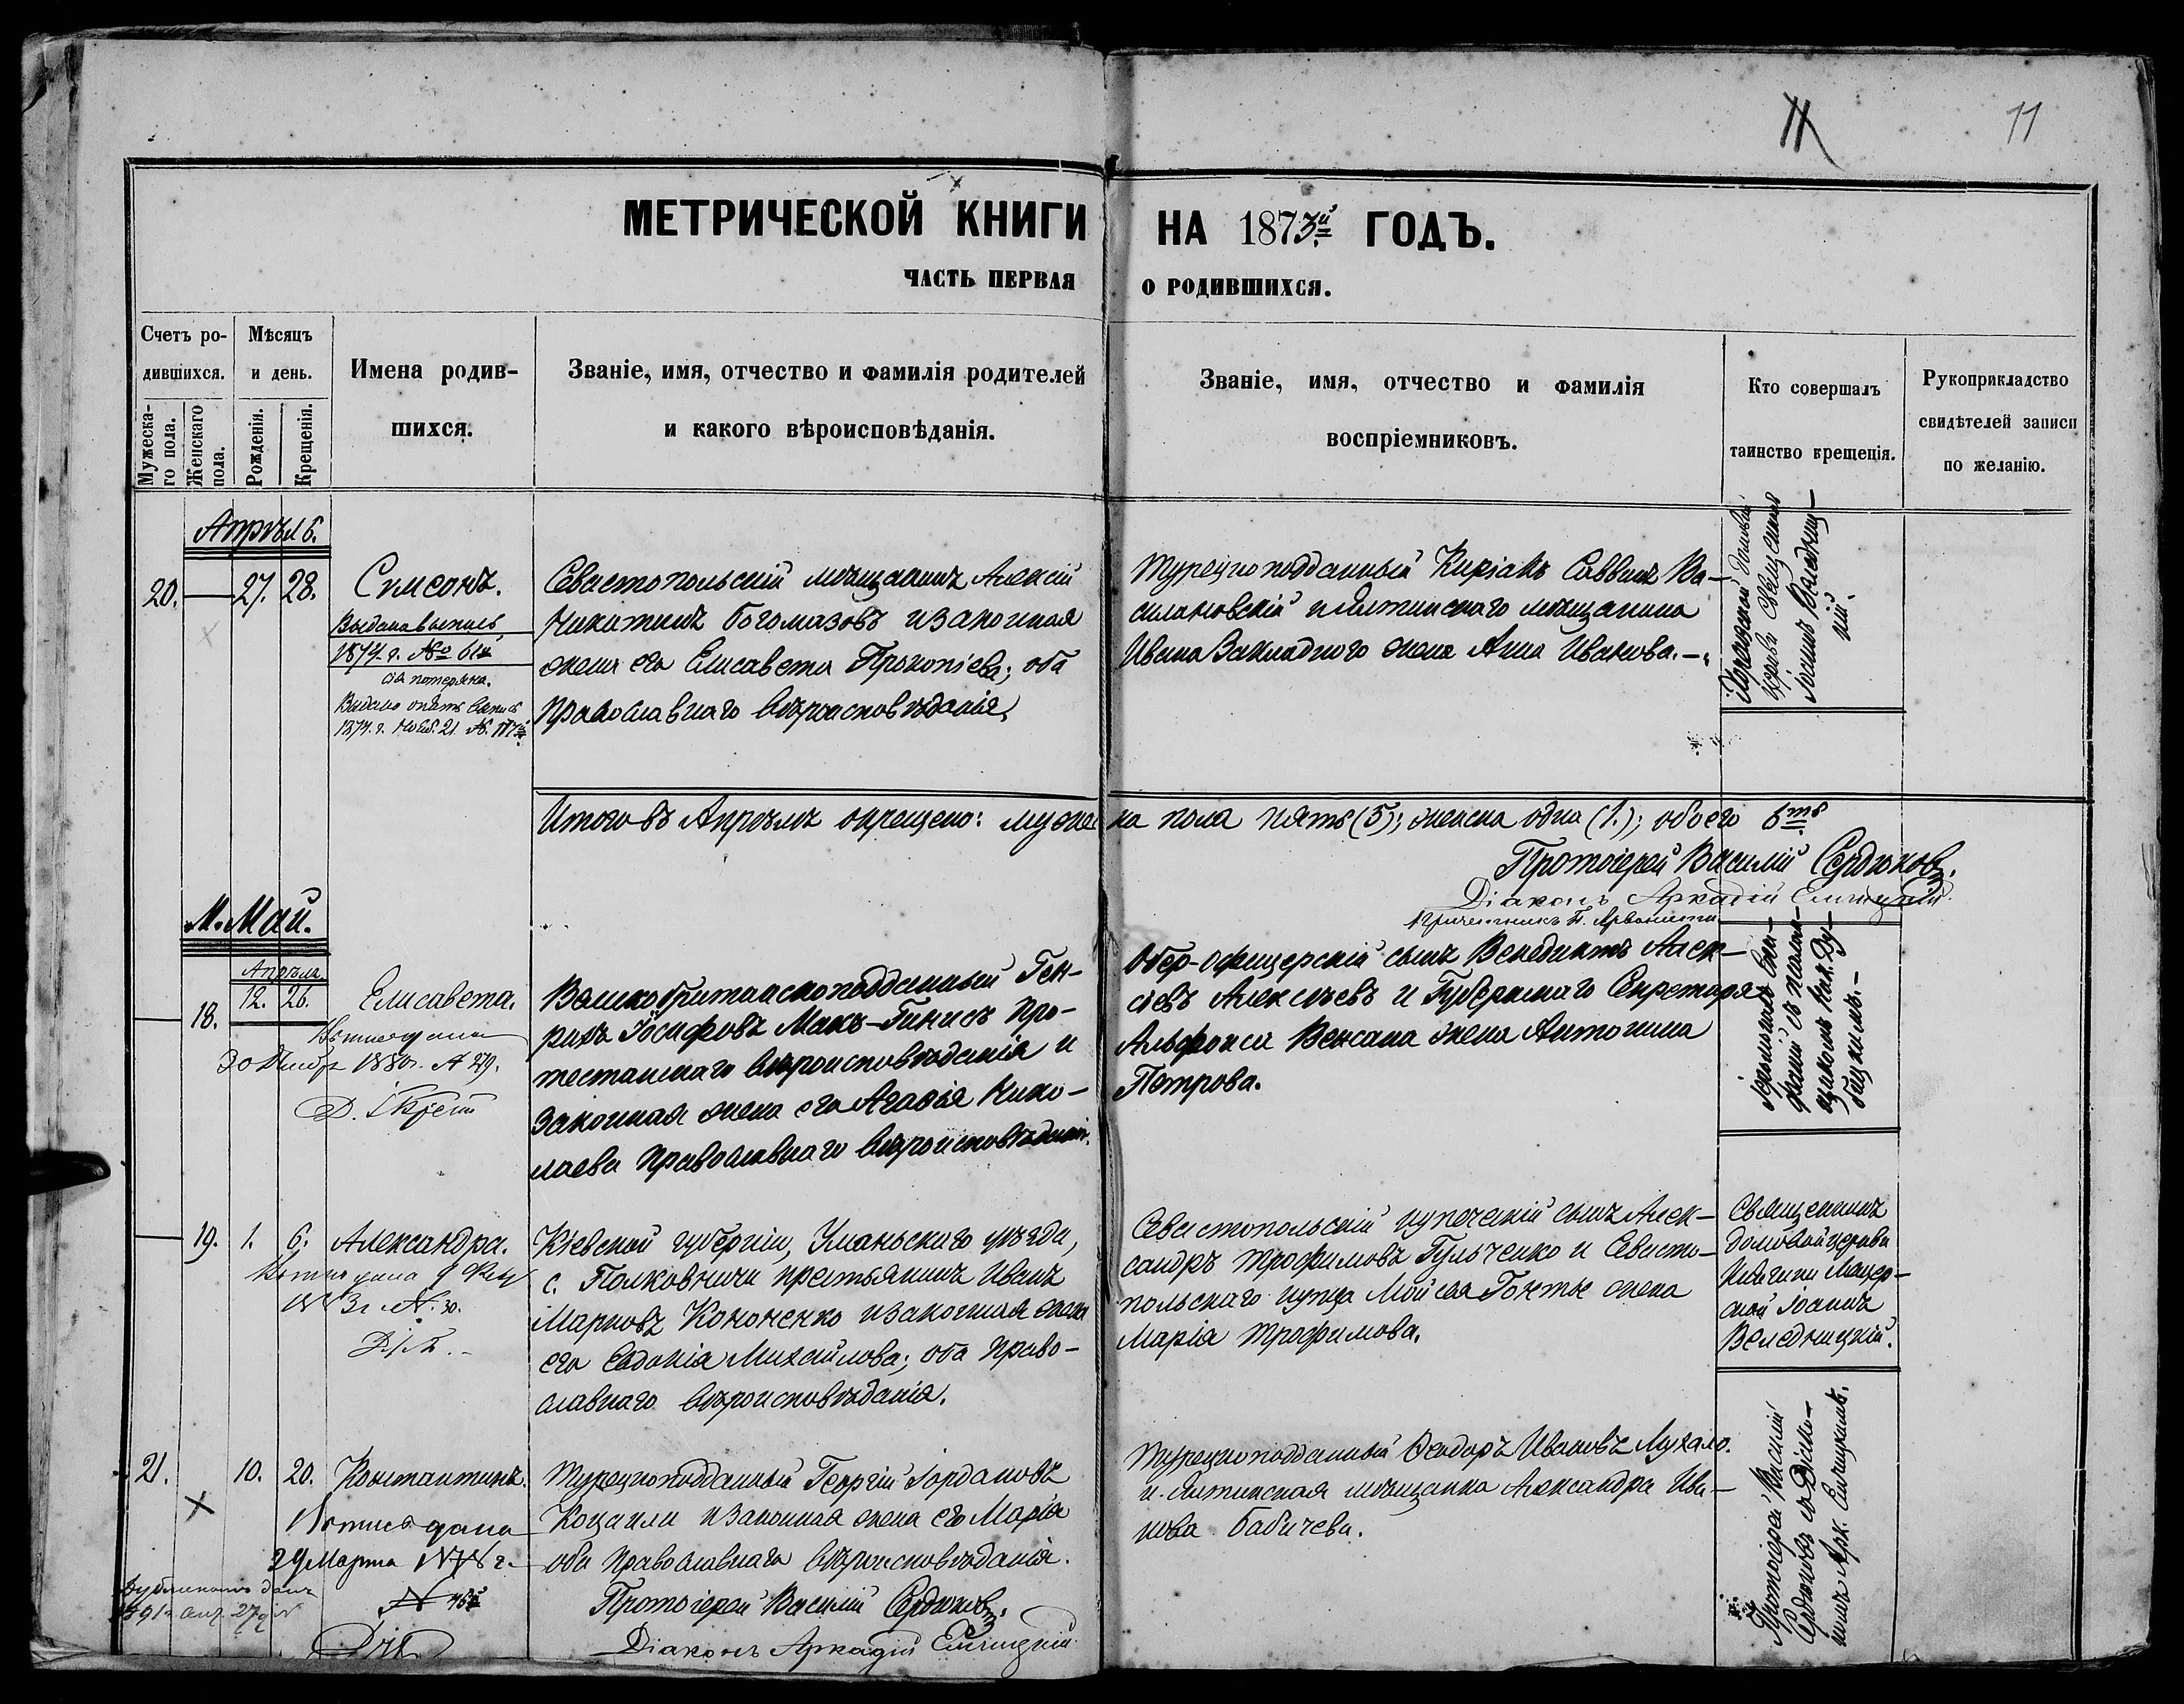 11
МЕТРИЧЕСКОЙ КНИГИ НА 1873й ГОДЪ.
ЧАСТЬ ПЕРВАЯ О РОДИВШИХСЯ.
Счетъ ро-
дившихся.
Мужеска-
го пола.
Женскаго
пола.
Мѣсяцъ
и день.
Рожденія.
Крещенія.
Имена родив-
шихся.
Званіе, имя, отчество и фамилія родителей
и какого вѣроисповѣданія.
Званіе, имя, отчество и фамилія
воспріемниковъ.
Кто совершалъ
таинство крещенія.
Рукоприкладство
свидѣтелей записи
по желанію.
Апрѣль.
20. — 27. 28. Симеонъ.
Выдана выпись
1874 г. №
сія потеряна.
Выдана опять выпись
1874 г. Нояб. 21. №
Севастопольскій мѣщанинъ Алексій
Никитинъ Богомазовъ и законная
жена его Елисавета Прокопіева; оба
Православнаго вѣроисповѣданія.
Турецкоподданный Киріакъ Саввинъ Ва-
силановскій и Ялтинскаго мѣщанина
Ивана Закладного жена Анна Иванова.
церкви Священникъ
Іоаннъ Веледниц-
кій.
Итого въ Апрѣлѣ окрещено: мужеска пола пять (5); женска одна (1.); обоего 6ть
Протоіерей Василій Сердюковъ.
Діаконъ Аркадій
М. Май.
Апрѣля
— 18. 12. 26. Елисавета.
1880 г. № 279.
Великобританскоподданный Ген-
рихъ Іосифовъ Макъ-Гинисъ Про-
тестанскаго вѣроисповѣданія и
Законная жена его Агафія Нико-
лаева Православнаго вѣроисповѣданія.
Обер-офицерскій сынъ Венедиктъ Алек-
сѣевъ Алексѣевъ и Губернскаго Секретаря
Альфонса Венсана жена Антонина
Петрова.
— 19. 1. 6. Александра.
№ 30.
Кіевской губерніи, Уманьскаго уѣзда,
с. Полковничи крестьянинъ Иванъ
Марковъ Кононенко и законная жена
его Евдокія Михайлова; оба Право-
славнаго вѣроисповѣданія.
Севастопольскій купеческій сынъ Алек-
сандръ Трофимовъ Гульченко и Севасто-
польскаго купца Мойсея Гонты жена
Марія Трофимова.
Священникъ
домовой церкви
ской Іоаннъ
Веледницкій.
21. 10. 20. Константинъ.
Выпись дана
29 Марта
Турецкоподданный Георгій Іордановъ
и законная жена его Марія
оба Православнаго вѣроисповѣданія.
Протоіерей Василій Сердюковъ.
Діаконъ Аркадій
Турецкоподданный Ѳеодоръ Ивановъ
и Ялтинская мѣщанка Александра Ива-
нова Бабичева.
Протоіерей Василій
Сердюковъ съ Діако-